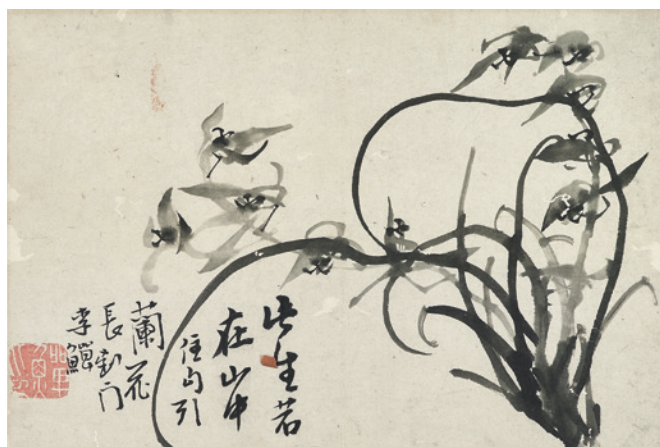 此生若
在山中
住勾引
蘭花
長對門
李鱓